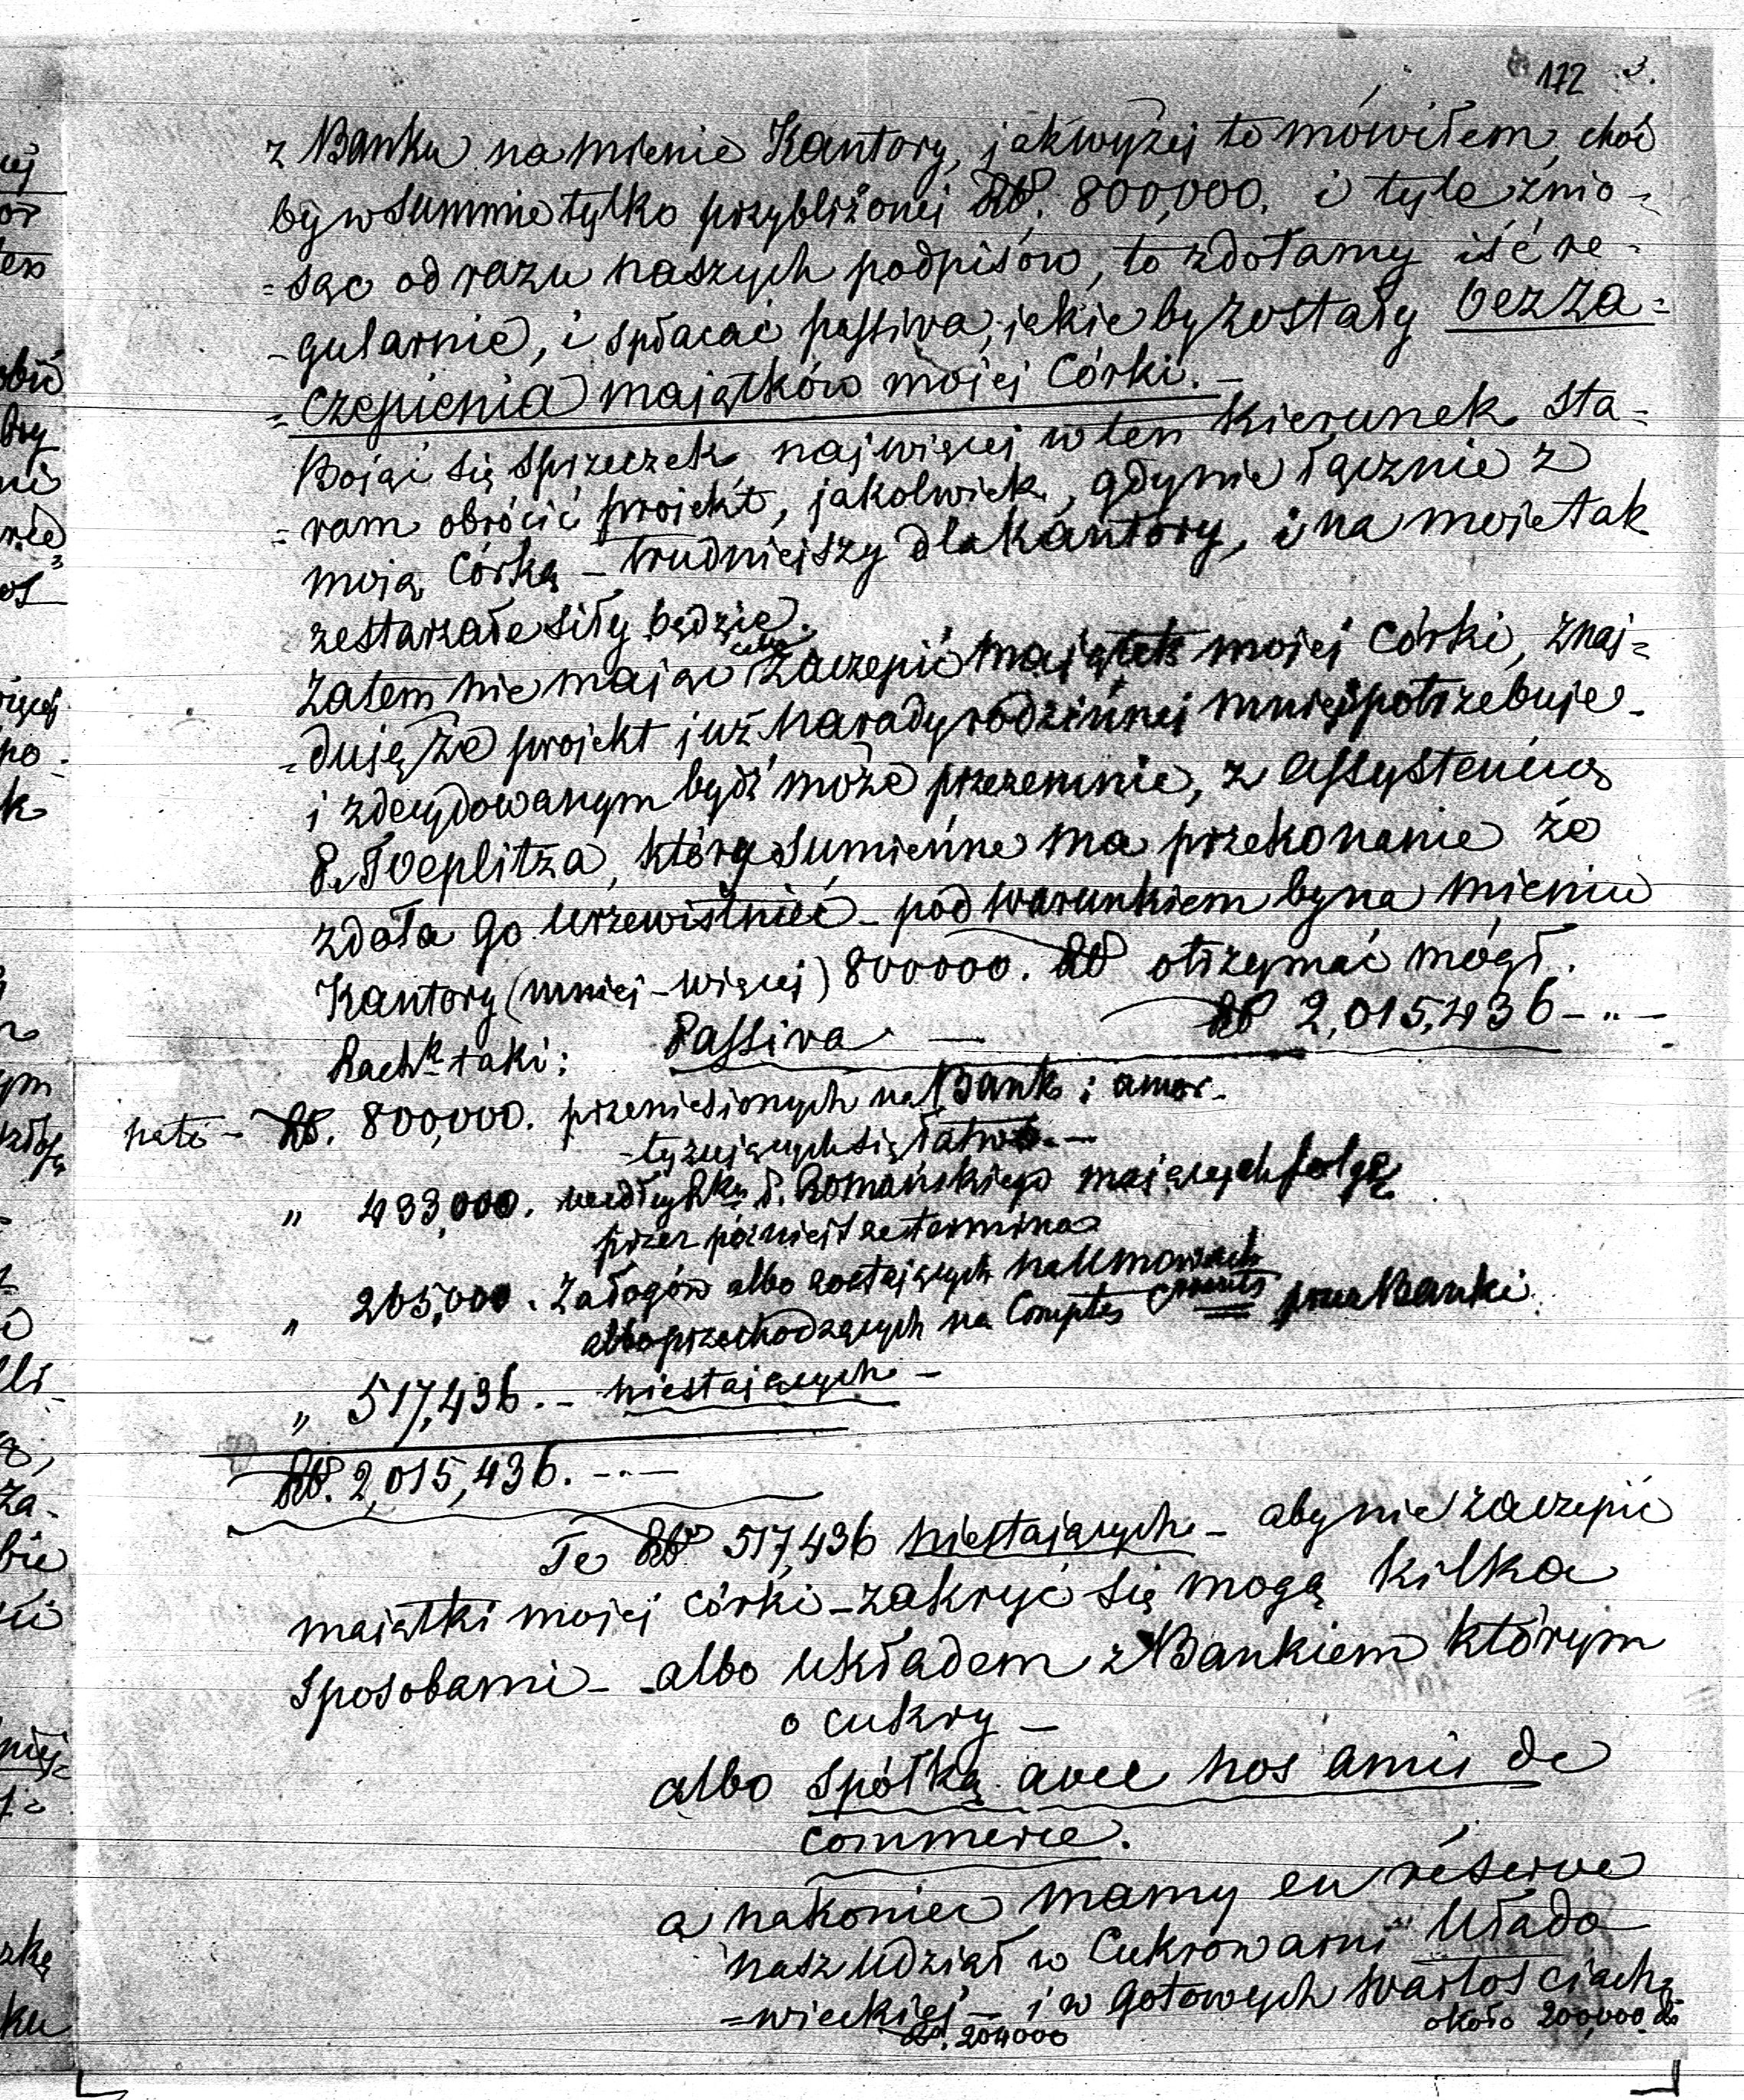 172 3.
z Banku na mienie Kantory, jak wyżej to mówiłem, choć
by w summie tylko przybliżonej RS. 800,000. i tyle znio-
=sąc od razu naszych podpisów, to zdołamy iść re-
-gularnie, i spłacać passiva, jakie by zostały bez za=
=czepienia majątków mojej Córki.-
Bojąc się sprzeczek, najwięcej w ten kierunek sta-
=ram obrócić projekt, jakolwiek, gdy nie łącznie z
moją Córką - trudniejszy dla Kantory, i na moje tak
zestarzałe siły będzie.
Zatem nie mając zaczepić majątek mojej Córki, znaj=
=duję że projekt już narady rodzinnej mniej potrzebuje-
i zdecydowanym bydź może przezemnie, z assystencią
P. Toeplitza, który sumienne ma przekonanie że
zdoła go urzewistnić - pod warunkiem by na mieniu
Kantory (mniej-więcej) 800000. RS otrzymać mógł.
Rachk taki: Passiva — RS 2,015,436-"-
na to - RS. 800,000. przeniesionych na Bank i amor-
-tyzujących się łatwo.-
" 433,000. według Rku P. Romańskiego mających folgę
przez późniejsze termina
" 265,000. Załogów albo zostających na Umowach
albo przechodzących na Comptes Courants przez Banki.
" 517,436.- niestających -
RS. 2,015,436.-"-
Te RS 517,436 niestających - aby nie zaczepić
majątki mojej córki - zakryć się mogą kilka
sposobami - -albo układem z Bankiem którym
o cukry -
albo spółką avec nos amis de
commerce.
a nakoniec mamy en réserve
nasz udział w Cukrowarni Włado
=wieckiej - i w gotowych wartościach
RS. 204000 około 200,000 RS